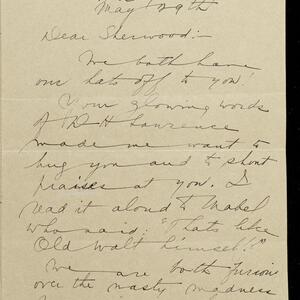 May 29th
Dear Sherwood:-
We both have
our hats off to you!
Your glowing words
of D H Lawrence
made me want to
hug you and to shout
praises at you. I
read it aloud to Mabel
who said: "Thats like
Old Walt himself!!"
We are both furious
over the nasty madness